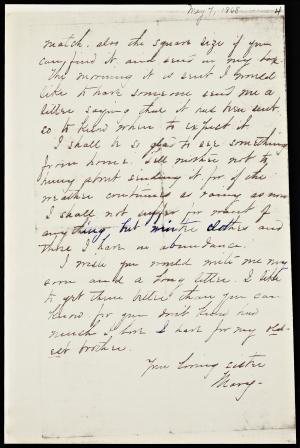 May 7, 1868
4
match. also the square size if you
can find it and send in my box.
The morning it is sent I would
like to have someone send me a
letter saying that it had been sent
so to know where to expect it
I shall be so glad to see something
from home. Tell mother not to
hurry about sending it for if the
weather continues as rainy as now
I shall not suffer for want of
anything but winter clothes and
those I have in abundance.
I wish you would write me very
soon and a long letter. I like
to get them better than you can
know for you don't know how
much love I have for my old-
est brother.
Your loving sister
Mary-